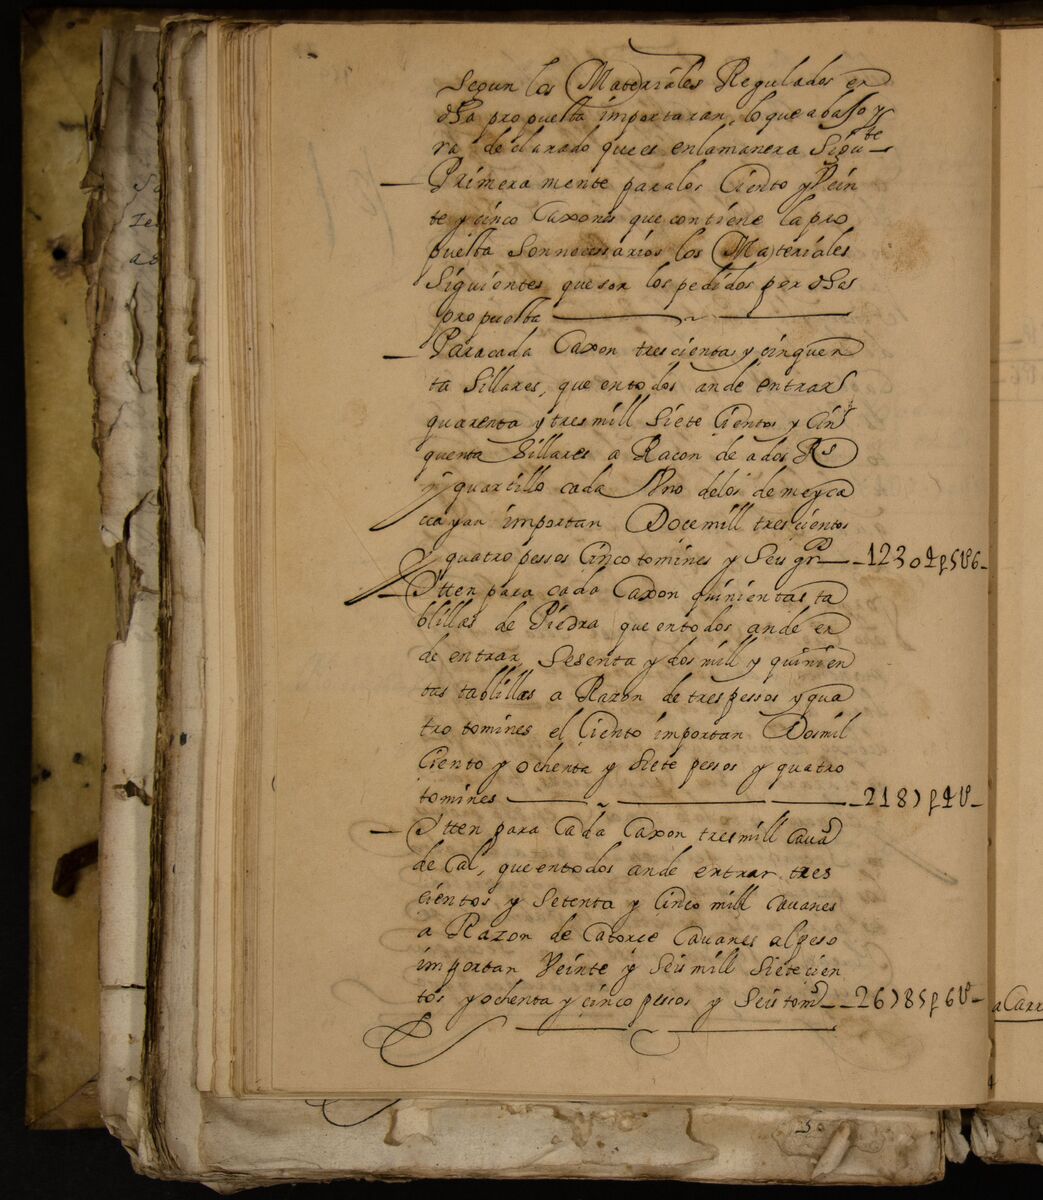 Segun los Materiales Regulados en
dha propuesta importaran, lo que abaxo y
ra declarado que es en la manera Sigute
Primera mente para los Ciento y Vein
te y cinco Caxones que contiene la pro
puesta Son necessarios los Materiales
Siguientes que son los pedidos por dhas
propuesta
Para cada Caxon trescientas y cinquen
ta Sillares, que en todos an de entrar
quarenta y tres mill Siete Cientos y Cin
quenta Sillares a Racon de a dos Rs
y quartillo cada Vno de los de meyca
uayan importan Doce mill trescientos
y quatro pessos Cinco tomines y Seis grs 12304 p 5 t 6
Itten para cada Caxon quinientas ta
blillas de Piedra que en todos an de en
de entrar Sesenta y dos mill y quinien
tas tablillas a Razon de tres pessos y qua
tro tomines el Ciento importan Dos mil
Ciento y ochenta y Siete pessos y quatro
tomines 2187 p 4 t
Itten para Cada Caxon tres mill Caua
de Cal, que en todos an de entrar tres
cientos y Setenta y Cinco mill Cauanes
a Razon de Catorce Cauanes al peso
importan Veinte y Seis mill Siete cien
tos y ochenta y cinco pessos y Seis toms 26785 p 6 t